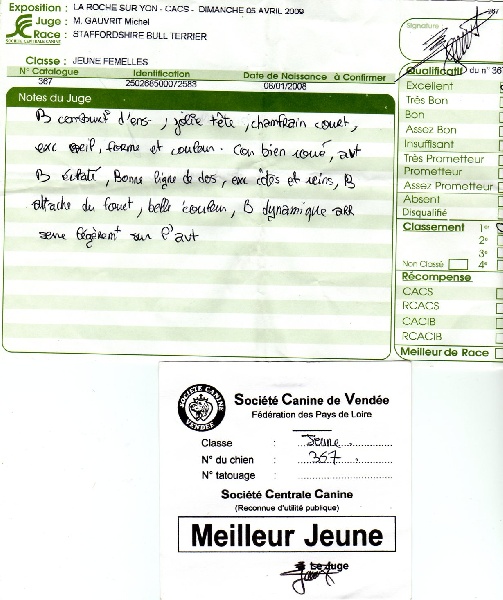 Exposition : LA ROCHE SUR YON - CACS - DIMANCHE 05 AVRIL 2009
Juge : M. GAUVRIT Michel
Race : STAFFORDSHIRE BULL TERRIER
SOCIETE CENTRALE CANINE
Classe : JEUNE FEMELLES
N° Catalogue Identification Date de Naissance à Confirmer
367 250268500072583 06/01/2008
Notes du Juge
B construct d'ens, jolie tête, chanfrain court,
exc oeil, forme et couleur. Cou bien roué, avt
B éclaté, Bonne ligne de dos, exc côtes et reins, B
attache du fouet, belle couleur, B dynamique arr
serre légèremt sur l'avt
367
Signature :
Qualificatif du n° 367
Excellent
Très Bon
Bon
Assez Bon
Insuffisant
Très Prometteur
Prometteur
Assez Prometteur
Absent
Disqualifié
Classement 1er
2e
3e
Non Classé 4e
Récompense
CACS
RCACS
CACIB
RCACIB
Meilleur de Race
SOCIÉTÉ CANINE VENDÉE
Société Canine de Vendée
Fédération des Pays de Loire
Classe : Jeune
N° du chien : 357
N° tatouage :
Société Centrale Canine
(Reconnue d'utilité publique)
Meilleur Jeune
Le Juge